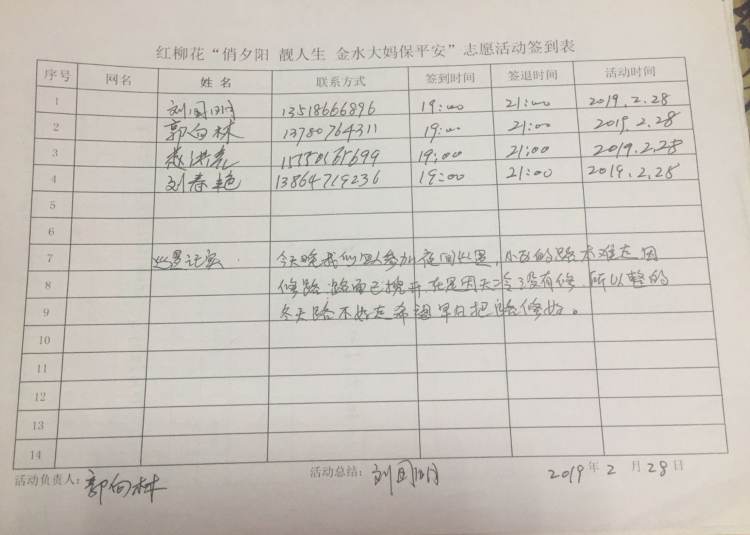 红柳花“俏夕阳 靓人生 金水大妈保平安”志愿活动签到表
序号 网名 姓名 联系方式 签到时间 签退时间 活动时间
1 刘国明 13518666896 19:00 21:00 2019.2.28
2 郭向林 13780764311 19:00 21:00 2019.2.28
3 19:00 21:00 2019.2.28
4 刘春艳 13864719236 19:00 21:00 2019.2.28
5
6
7 巡逻记实 今天晚我们四人参加夜间巡逻,小区的路不难走因
8 修路 路面已挽开 因天冷没有修 所以整的
9 冬天路不好走希望早日把路修好。
10
11
12
13
14
活动负责人: 郭向林 活动总结: 刘国明 2019年2月28日